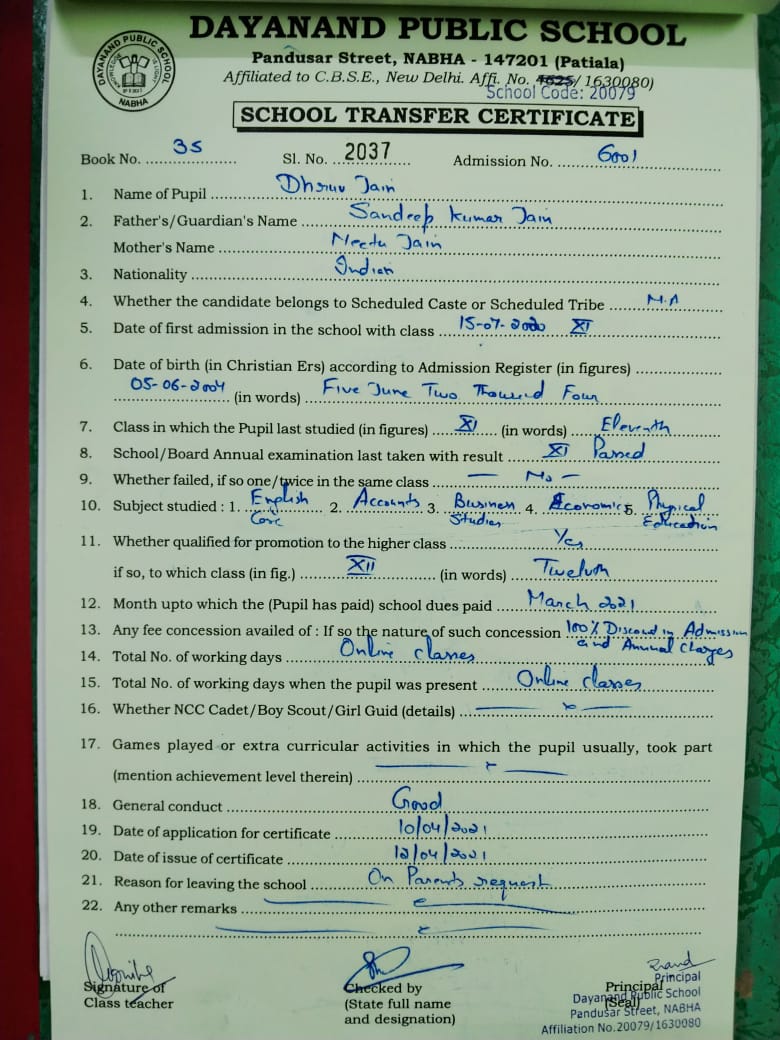 DAYANAND PUBLIC SCHOOL
DAYANAND PUBLIC SCHOOL
NABHA
Pandusar Street, NABHA - 147201 (Patiala)
Affiliated to C.B.S.E., New Delhi. Affi. No. 4625/ 1630080)
School Code: 20079
SCHOOL TRANSFER CERTIFICATE
Book No. 35 Sl. No. 2037 Admission No. 6001
1. Name of Pupil Dhruv Jain
2. Father's/Guardian's Name Sandeep Kumar Jain
Mother's Name Neetu Jain
3. Nationality Indian
4. Whether the candidate belongs to Scheduled Caste or Scheduled Tribe N.A
5. Date of first admission in the school with class 15-07-2020 XI
6. Date of birth (in Christian Ers) according to Admission Register (in figures)
05-06-2004 (in words) Five June Two Thousand Four
7. Class in which the Pupil last studied (in figures) XI (in words) Eleventh
8. School/Board Annual examination last taken with result XI Passed
9. Whether failed, if so one/twice in the same class — No —
10. Subject studied : 1. English Core 2. Accounts 3. Business Studies 4. Economics 5. Physical Education
11. Whether qualified for promotion to the higher class Yes
if so, to which class (in fig.) XII (in words) Twelvth
12. Month upto which the (Pupil has paid) school dues paid March 2021
13. Any fee concession availed of : If so the nature of such concession 100% Discound in Admission
and Annual Charges
14. Total No. of working days Online classes
15. Total No. of working days when the pupil was present Online classes
16. Whether NCC Cadet/Boy Scout/Girl Guid (details)
17. Games played or extra curricular activities in which the pupil usually, took part
(mention achievement level therein)
18. General conduct Good
19. Date of application for certificate 10/04/2021
20. Date of issue of certificate 12/04/2021
21. Reason for leaving the school On Parents request
22. Any other remarks
Signature of
Class teacher
Checked by
(State full name
and designation)
Principal
(Seal)
Principal
Dayanand Public School
Pandusar Street, NABHA
Affiliation No.20079/1630080